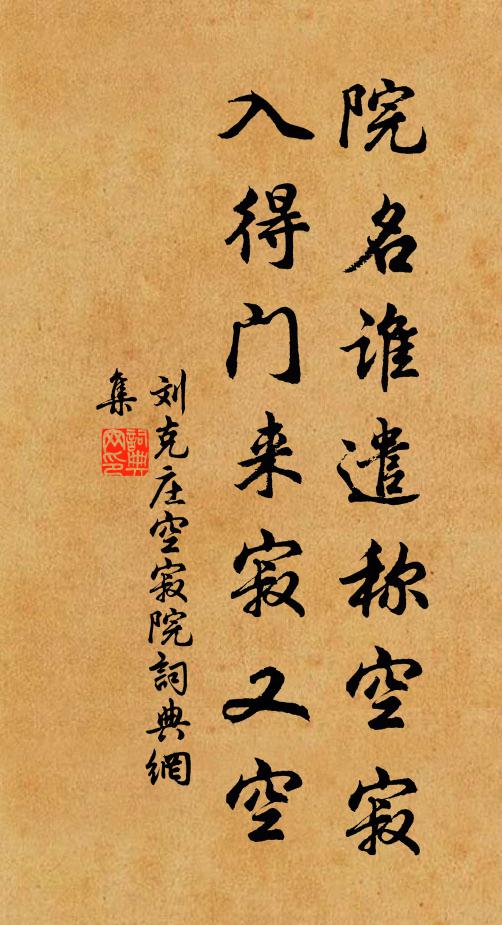 院名谁遣称空寂
入得门来寂又空
刘克庄空寂院詞典網
集
詞典
网印